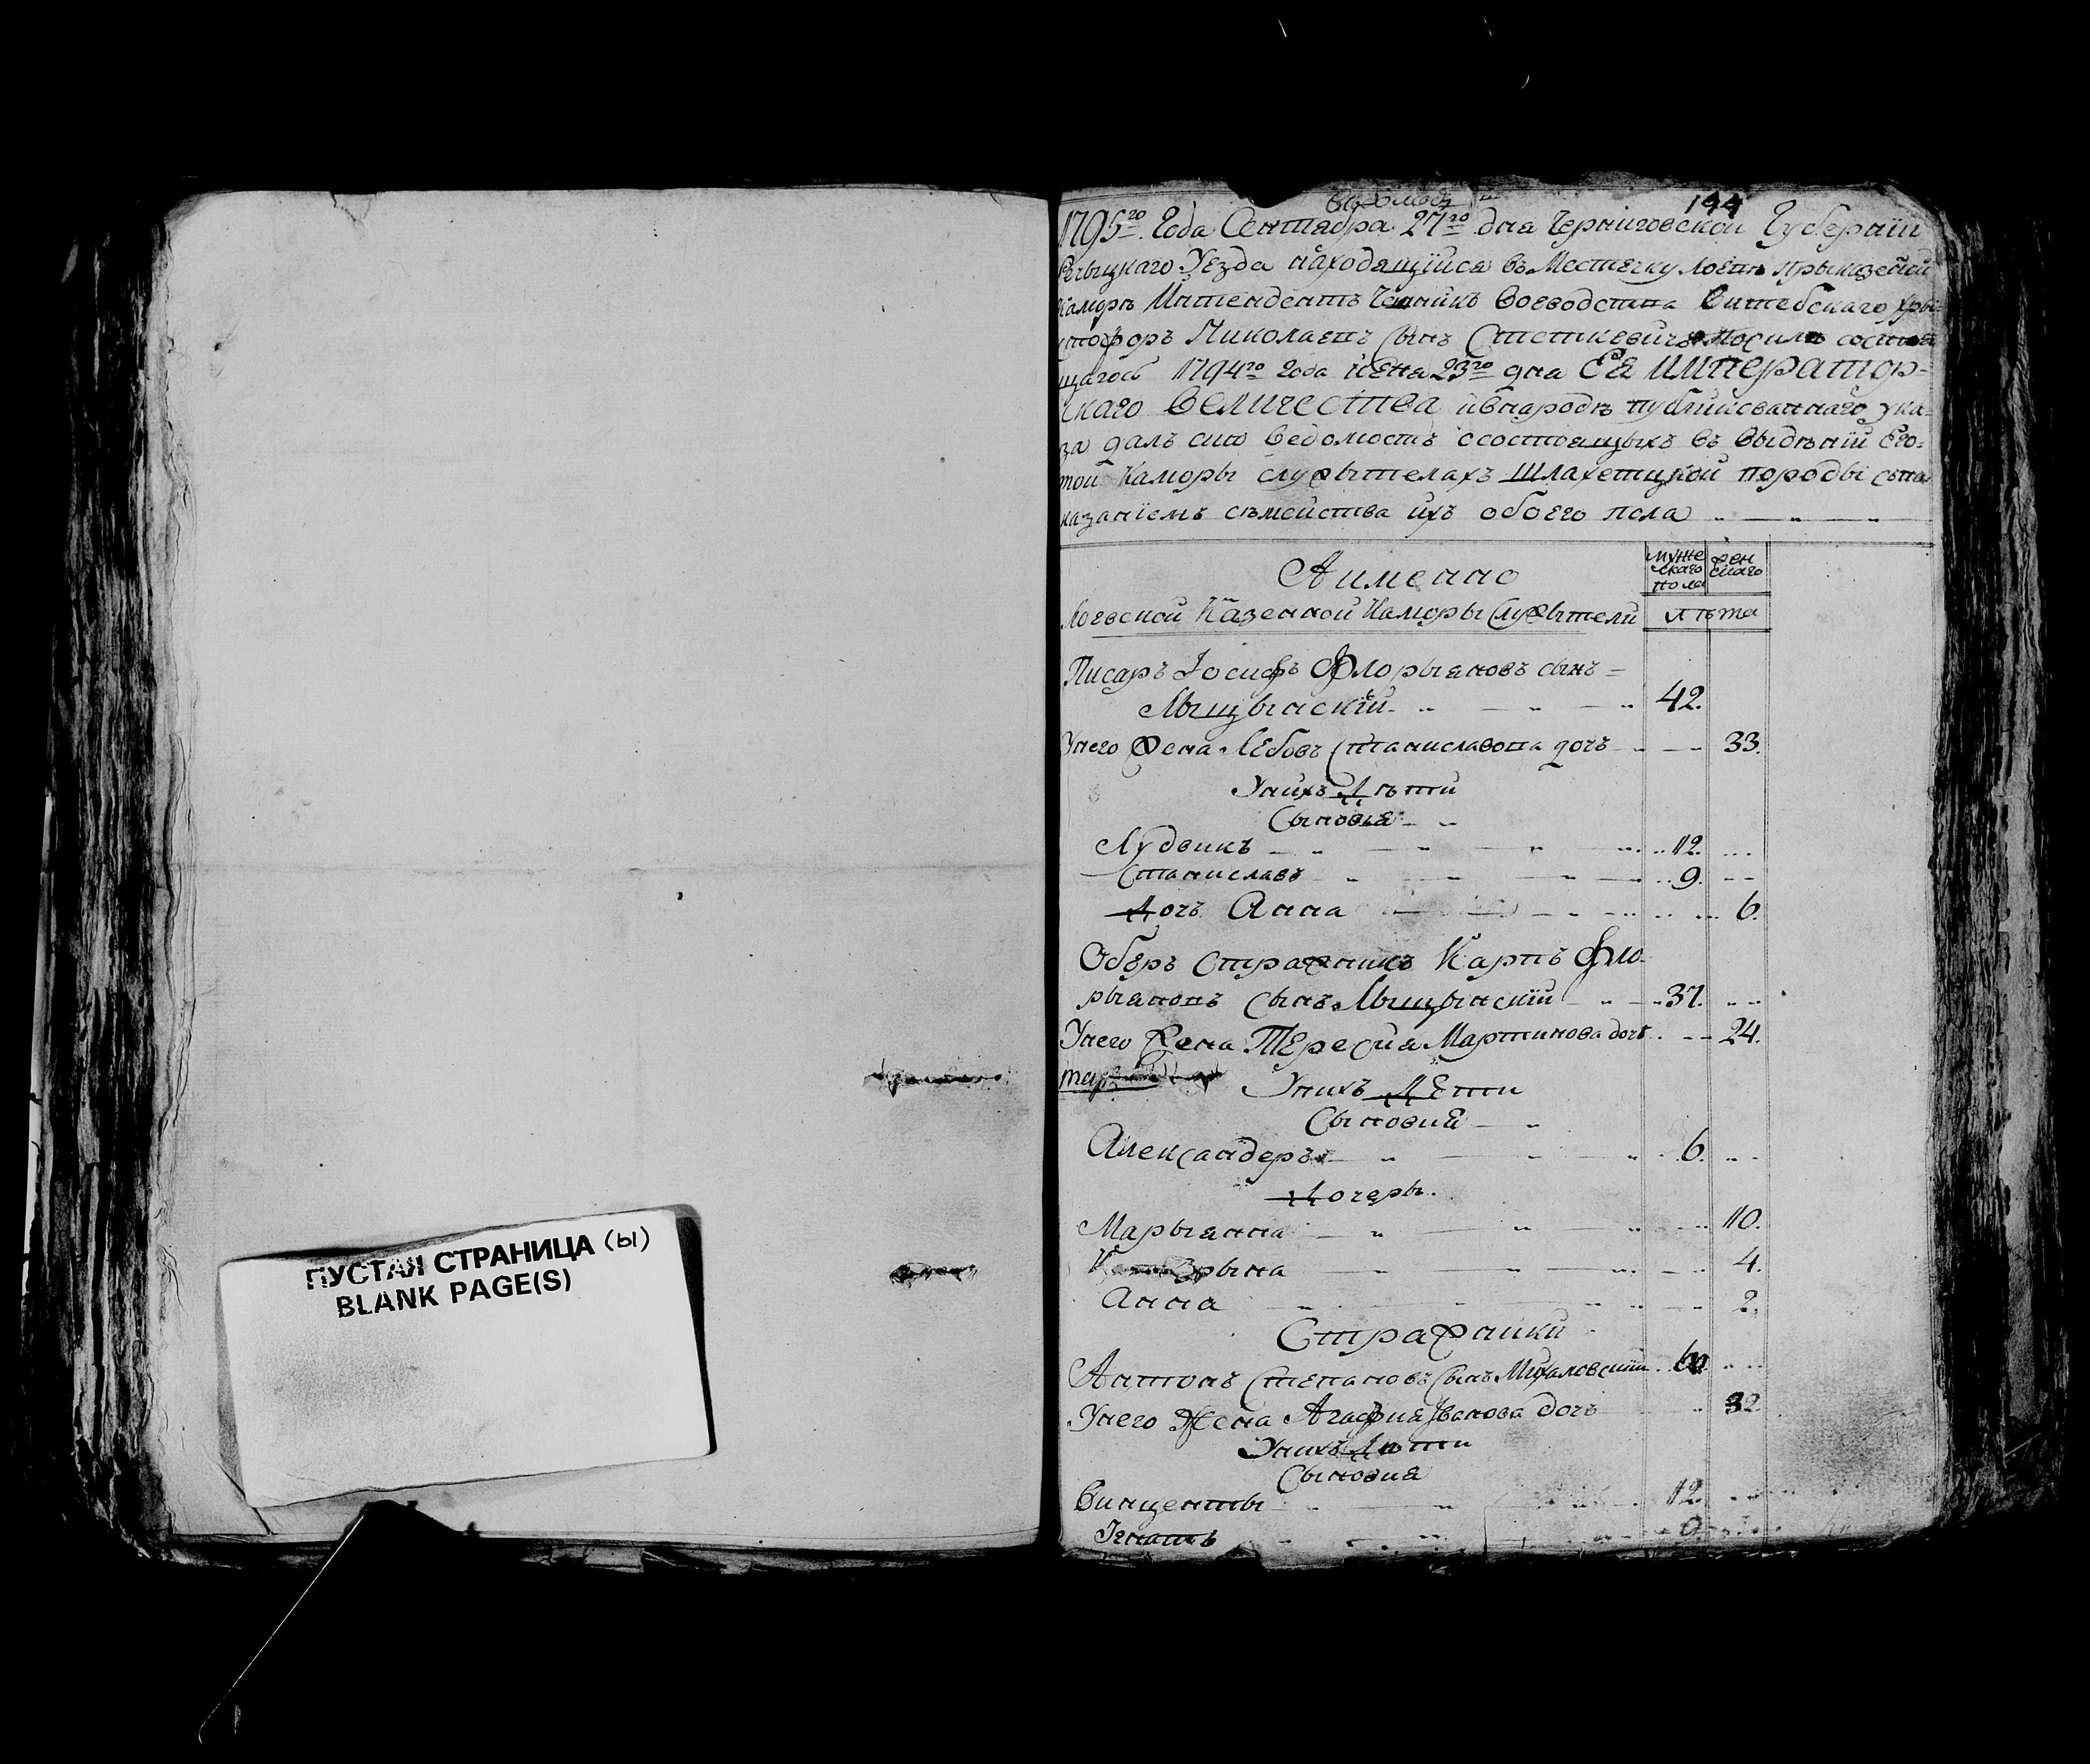 ПУСТАЯ СТРАНИЦА (Ы)
BLANK PAGE(S)
194
1795го Года Сентября 27го дня Черниговской Губернiи
Речыцкаго Уезда находящiйся въ Местечку Лоеве при казеной
Каморѣ Интендентъ Чашникъ Воеводства Витебскаго Хры-
стофоръ Николаевъ Сынъ Стеткевичъ Посилѣ состояв
щагось 1794го Года Июня 23го дня Ея Император-
скаго Величества ивнародѣ публикованнаго ука-
за далъ сию Ведомость осостоящыхъ въ выдѣнiй Его-
той Каморы служытелахъ Шлахетцкой породы сьпа
казанiемъ сѣмейства ихъ обоего пола
Аименно
мужескаго пола
женскаго
Лоевской Казенной Каморы Служытели
лѣта
Писаръ Iосифъ Флорыяновъ сынъ =
Лыщынскiй 42.
Унего жена Лебовъ Станиславова дочъ 33.
Унихъ Дѣти
Сыновiя
Лудвикъ 12.
Станиславъ 9.
Дочъ Анна 6.
Оберъ Стражникъ Карпъ Фло-
рыяновъ Сынъ Лыщынскiй 37.
Унего жена Тересия Мартинова дочъ 24.
Унихъ Дети
Сыновия
Александеръ 6.
Дочеры.
Марыянна 10.
4.
Анна 2.
Стражники
Антонъ Степановъ Сынъ Михаловскiй 60
Унего Жена Агафия Iванова дочъ 32
Унихъ Дѣти
Сыновия
Винценты 12.
Iгнатъ 9.